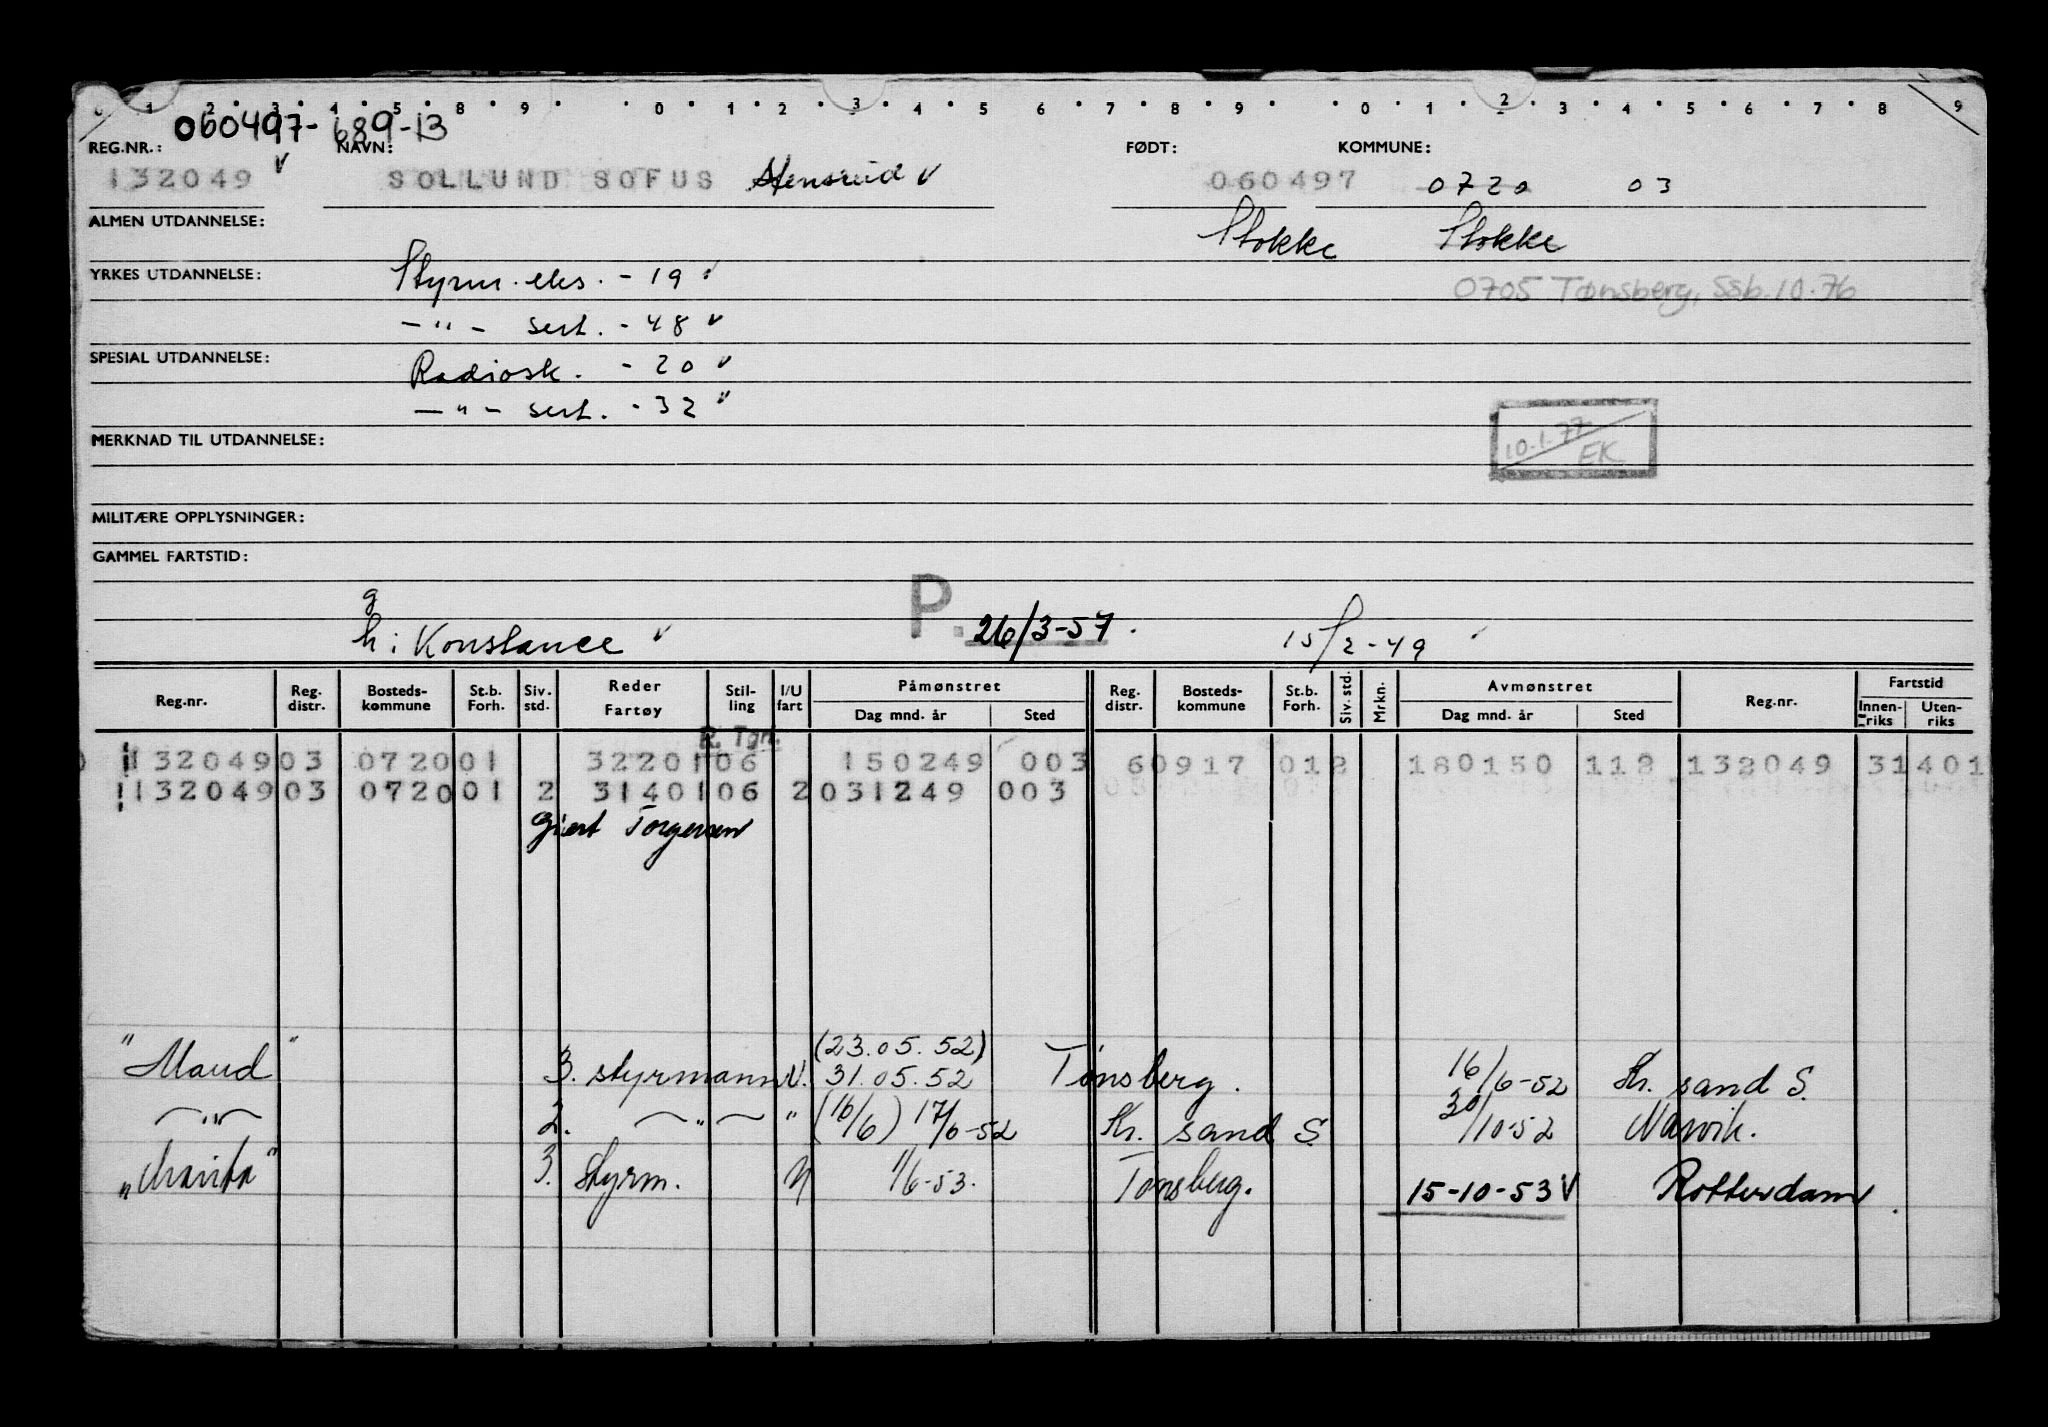 0 1 2 3 4 5 8 9 0 1 2 3 4 5 6 7 8 9 0 1 2 3 4 5 6 7 8 9
060497-689-13
REG.NR.: NAVN: FØDT: KOMMUNE:
132049 SOLLUND SOFUS 060497 0720 03
ALMEN UTDANNELSE: Stokke Stokke
YRKES UTDANNELSE: Styrm. eks. - 19 0705 Tønsberg, Ssb. 10.76
-"- sert. - 48
SPESIAL UTDANNELSE: Radiosk. - 20
-"- sert. - 32
MERKNAD TIL UTDANNELSE: 10.1.77 EK
MILITÆRE OPPLYSNINGER:
GAMMEL FARTSTID:
g
h: Konstance P. 26/3-57. 15/2-49
Reg.nr. Reg. distr. Bosteds- kommune St.b. Forh. Siv. std. Reder Fartøy Stil- ling I/U fart Påmønstret Dag mnd. år Sted Reg. distr. Bosteds- kommune St.b. Forh. Siv. std. Mrkn. Avmønstret Dag mnd. år Sted Reg.nr. Fartstid Innen- riks Uten- riks
R. Tgr.
132049 03 0720 01 32201 06 150249 003 60917 012 180150 112 132049 31401
132049 03 0720 01 2 31401 06 2 031249 003
Giert Torgersen
(23.05.52)
"Maud" 3. styrmann U. 31.05.52 Tønsberg. 16/6-52 Kr. sand S.
-"- 2. -"- " (16/6) 17/6-52 Kr. sand S 30/10-52 Narvik.
3. styrm. U 1/6-53. Tønsberg. 15-10-53 Rotterdam.